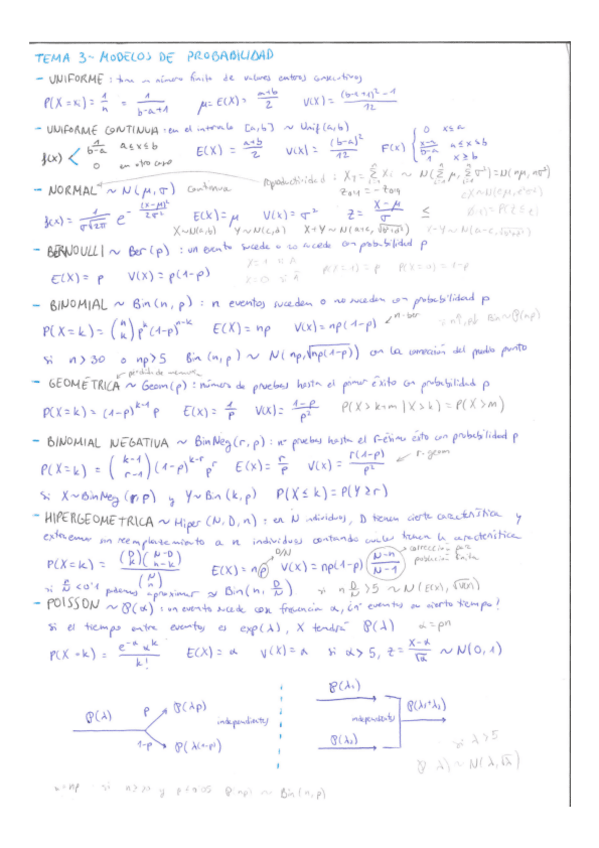 TEMA 3- MODELOS DE PROBABILIDAD
- UNIFORME: tiene un número finito de valores enteros consecutivos
P(X=xi) = 1/n = 1/(b-a+1)   μ = E(X) = (a+b)/2   V(X) = ((b-a+1)²-1)/12
- UNIFORME CONTINUA: en el intervalo [a,b] ~ Unif(a,b)
f(x) < 1/(b-a) a≤x≤b   E(X) = (a+b)/2   V(X) = (b-a)²/12   F(x) { 0 x≤a
0 en otro caso   (x-a)/(b-a) a≤x≤b
1 x≥b
- NORMAL ~ N(μ, σ) continua   Reproductividad: X_T = Σ Xi ~ N(Σ μ, Σ σ²) = N(nμ, nσ²)
f(x) = 1/(σ√2π) e^-(x-μ)²/2σ²   E(X) = μ   V(X) = σ²   Z = (X-μ)/σ ≤
X~N(a,b)   Y~N(c,d)   X+Y ~ N(a+c, √(b²+d²))
- BERNOULLI ~ Ber(p): un evento sucede o no sucede con probabilidad p
E(X) = p   V(X) = p(1-p)   P(X=1) = p   P(X=0) = 1-p
- BINOMIAL ~ Bin(n, p): n eventos suceden o no suceden con probabilidad p
P(X=k) = (n k) p^k (1-p)^n-k   E(X) = np   V(X) = np(1-p)   n-ber
si n>30 o np>5 Bin(n,p) ~ N(np, √np(1-p)) con la corrección del medio punto
pérdida de memoria
- GEOMÉTRICA ~ Geom(p): número de pruebas hasta el primer éxito con probabilidad p
P(X=k) = (1-p)^k-1 p   E(X) = 1/p   V(X) = (1-p)/p²   P(X>k+m | X>k) = P(X>m)
- BINOMIAL NEGATIVA ~ BinNeg(r, p): nº pruebas hasta el r-ésimo éxito con probabilidad p
P(X=k) = (k-1 r-1) (1-p)^k-r p^r   E(X) = r/p   V(X) = r(1-p)/p²   r-geom
Si X~BinNeg(r,p) y Y~Bin(k,p)   P(X≤k) = P(Y≥r)
- HIPERGEOMETRICA ~ Hiper (N, D, n): en N individuos, D tienen cierta característica y
extraemos sin reemplazamiento a n individuos contando cuales tienen la característica
P(X=k) = (D k)(N-D n-k)/(N n)   E(X) = np   D/N   V(X) = np(1-p) (N-n)/(N-1)   corrección por población finita
si n/N <0'1 podemos aproximar ~ Bin(n, D/N)   si n D/N >5 ~ N(E(x), √V(x))
- POISSON ~ P(α): un evento sucede con frecuencia α, ¿nº eventos en cierto tiempo?
Si el tiempo entre eventos es exp(λ), X tendrá P(λ)   α=pn
P(X=k) = e^-α α^k / k!   E(X) = α   V(X) = α   si α>5, Z = (X-α)/√α ~ N(0,1)
P(λ)   p   P(λp)   independientes   1-p   P(λ(1-p))
P(λ₁)   independientes   P(λ₂)   P(λ₁+λ₂)
si λ>5
P(λ) ~ N(λ, √λ)
P(np) ~ Bin(n, p)